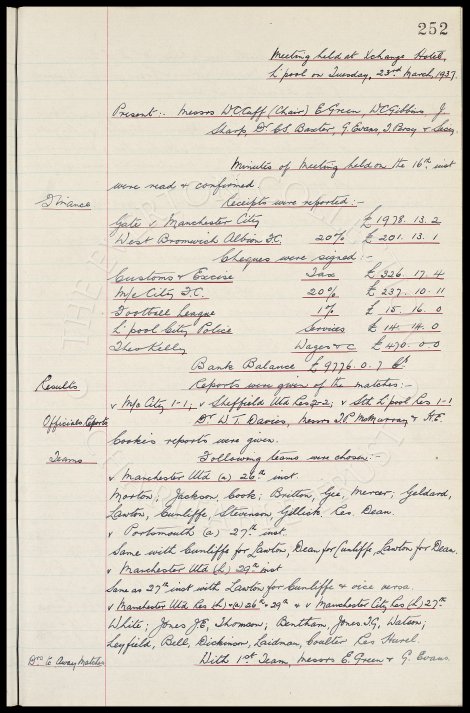 252
Meeting held at Xchange Hotel,
L'pool on Tuesday, 23rd March, 1937.
Present:- Messrs W.C. Cuff (Chair) E. Green, W.C. Gibbins, J.
Sharp, Dr C.S. Baxter, G. Evans, T. Percy & Secy.
Minutes of Meeting held on the 16th inst
were read & confirmed.
Finance
Receipts were reported:-
Gate v Manchester City £1978. 13. 2
West Bromwich Albion F.C. 20% £201. 13. 1
Cheques were signed:-
Customs & Excise Tax £326. 17. 4
M/c City F.C. 20% £237. 10. 11
Football League 1% £15. 16. 0
L'pool City Police Services £14. 14. 0
Theo Kelly Wages &c £470. 0. 0
Bank Balance £9776. 0. 7 Cr.
Results
Reports were given of the matches:-
v M/c City 1-1; v Sheffield Utd Res 2-2; v Sth L'pool Res 1-1
Officials Reports
Dr W.T. Davies, Messrs T.P. McMurray & H.E.
Cookes reports were given.
Teams
Following teams were chosen:-
v Manchester Utd (a) 26th inst.
Morton; Jackson, Cook; Britton, Gee, Mercer; Geldard,
Lawton, Cunliffe, Stevenson, Gillick Res. Dean.
v Portsmouth (a) 27th inst.
Same with Cunliffe for Lawton, Dean for Cunliffe, Lawton for Dean.
v Manchester Utd (h) 29th inst
Same as 27th inst with Lawton for Cunliffe & vice versa.
v Manchester Utd Res (h) & (a) 26th & 29th & v Manchester City Res (h) 27th
White; Jones J.E, Thomson; Bentham, Jones T.G, Watson;
Leyfield, Bell, Dickinson, Laidman, Coulter Res Hurel.
Drs to Away Matches
With 1st Team, Messrs E. Green & G. Evans.